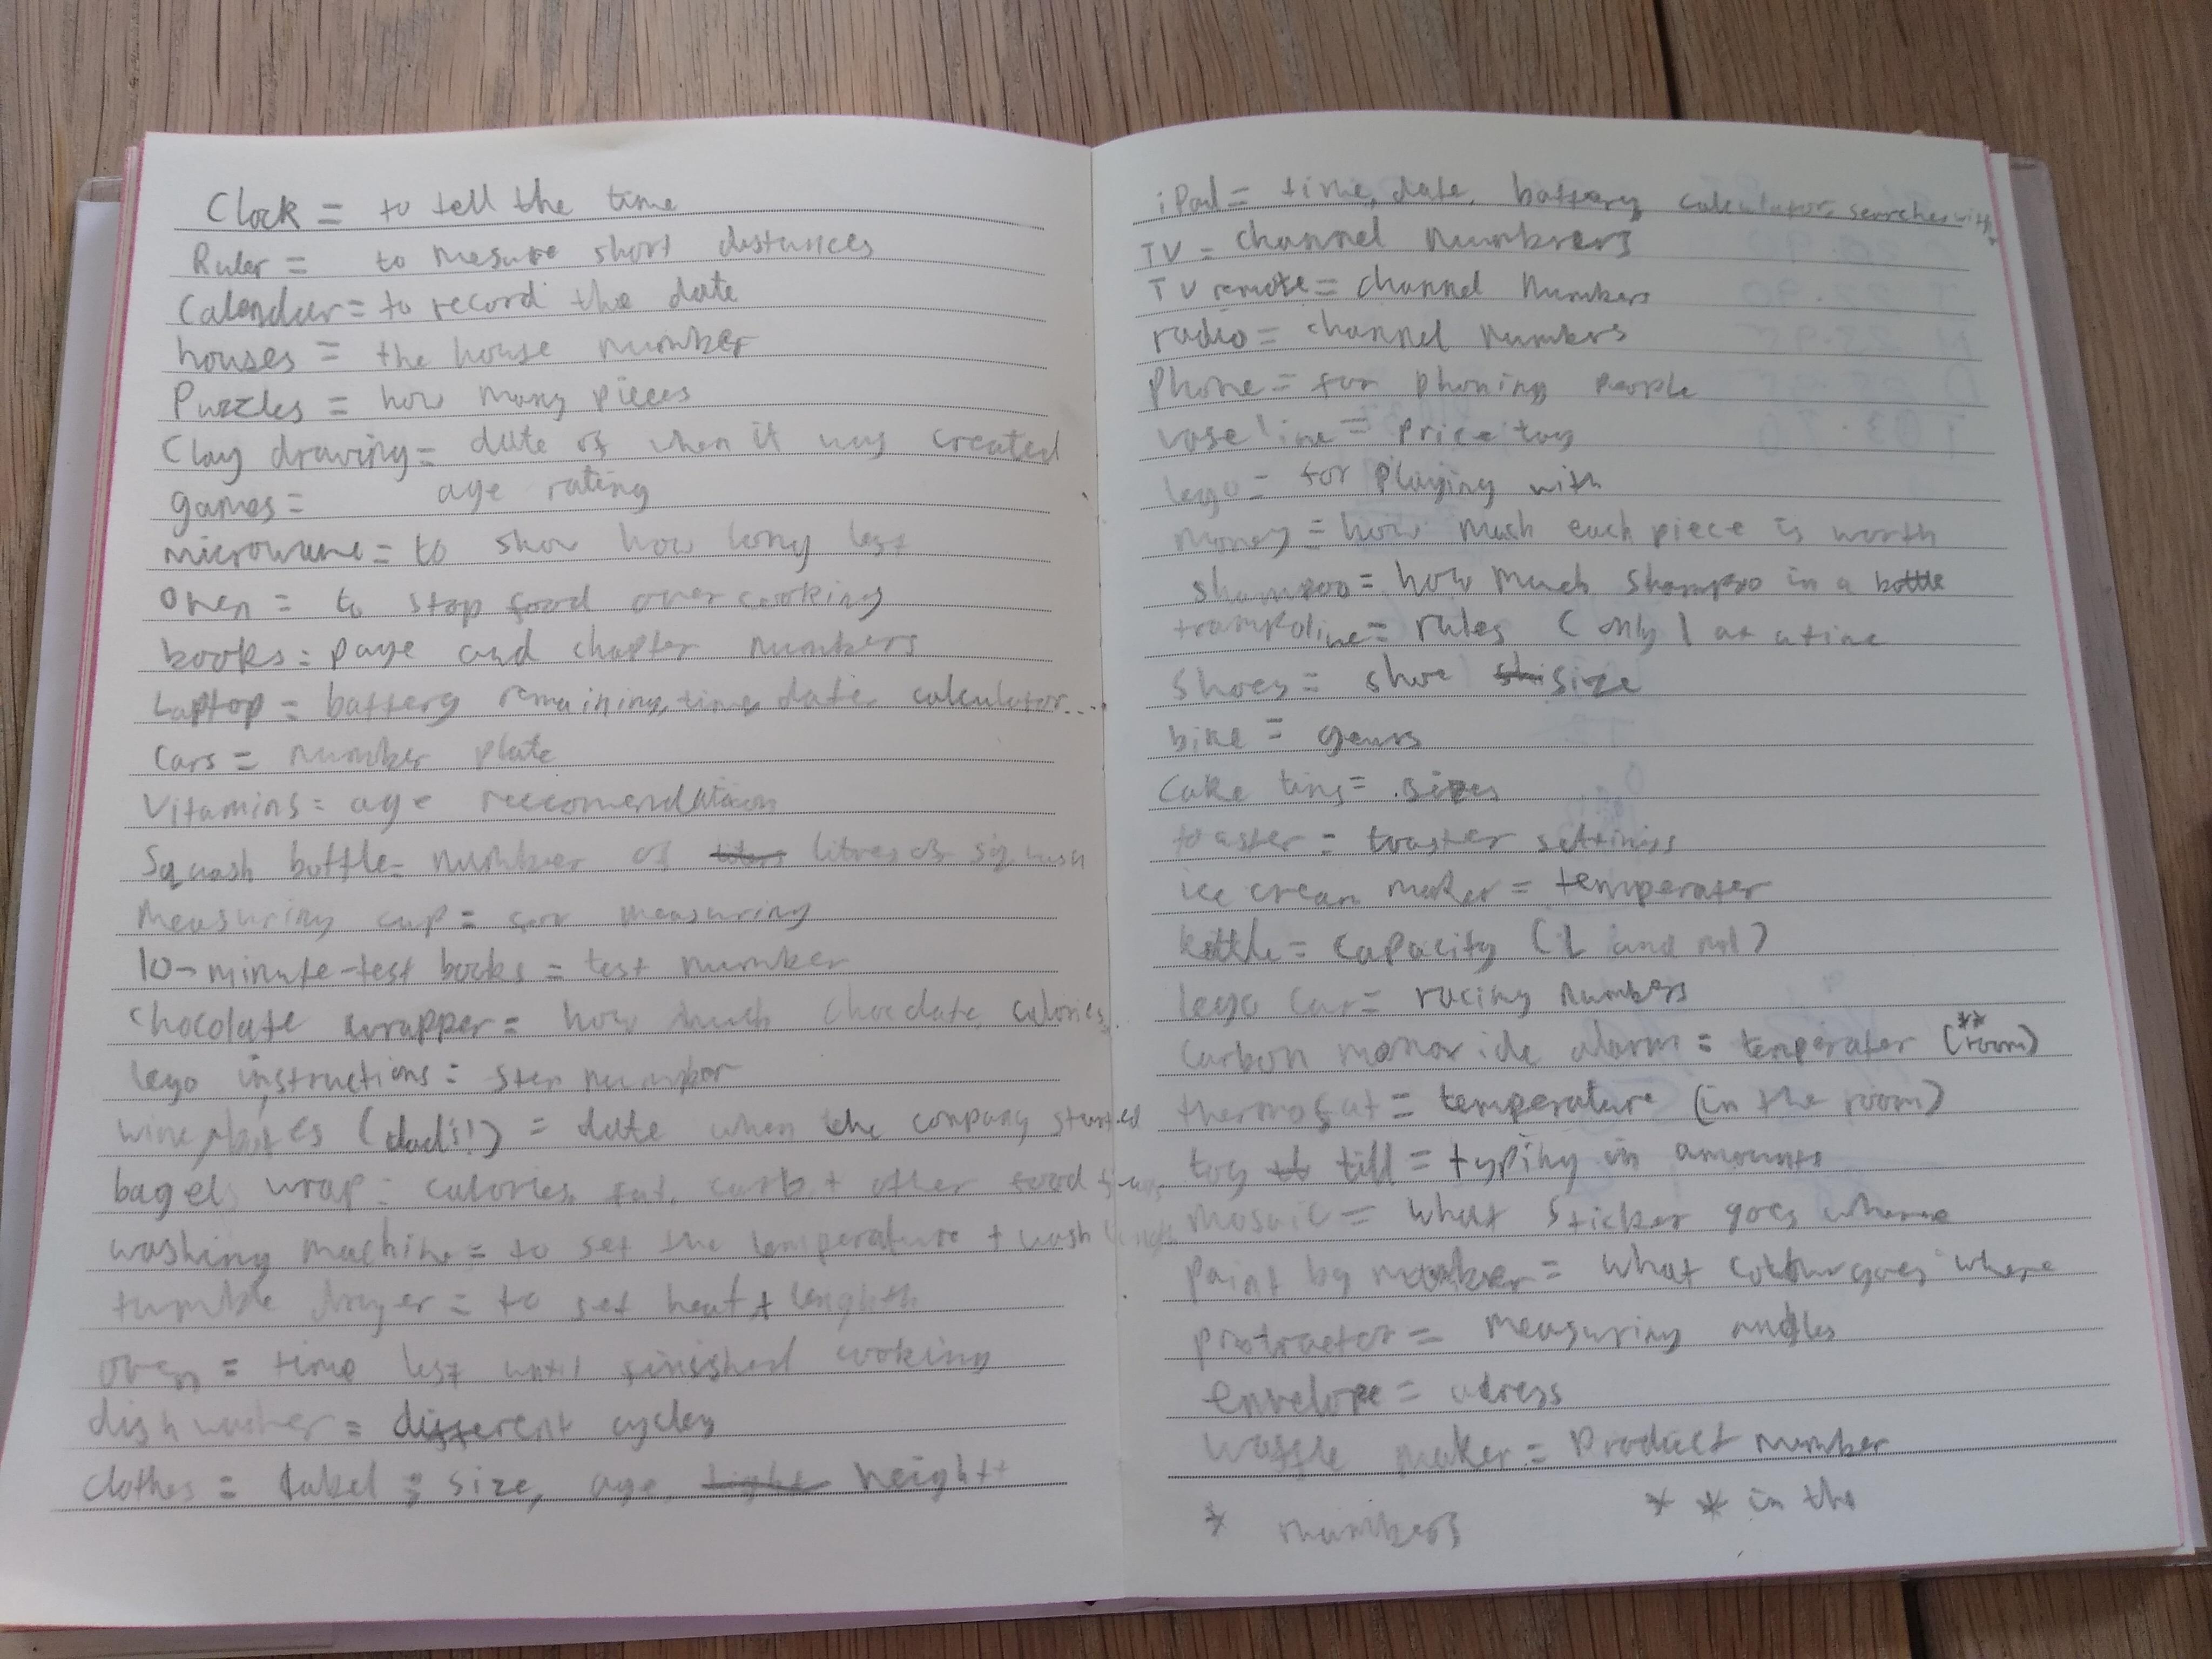 Clock = to tell the time
Ruler = to mesure short distances
Calendar = to record the date
houses = the house number
Puzzles = how many pieces
Clay drawing = date of when it was created
games = age rating
microwave = to show how long left
oven = to stop food over cooking
books = page and chapter numbers
Laptop = battery remaining, time, date, calculator...
Cars = number plate
Vitamins = age reccomendation
Squash bottle = number of litres of squash
Measuring cup = for measuring
10-minute-test books = test number
Chocolate wrapper = how much chocolate, calories
lego instructions = step number
wine (dad's!) = date when the company started
bagel wrap = calories, fat, carb + other food
washing machine = to set the temperature + wash
tumble dryer = to set heat + length
oven = time left until finished cooking
dishwasher = different cycles
clothes = label: size, age, height
iPad = time, date, battery calculator, searches with*
TV = channel numbrers
TV remote = channel numbers
radio = channel numbers
Phone = for phoning people
vaseline = price tag
lego = for playing with
money = how much each piece is worth
shampoo = how much shampoo in a bottle
trampoline = rules (only 1 at a time
Shoes = shoe size
bike = gears
Cake tins = sizes
toaster = toaster settings
ice cream maker = temperater
kettle = capacity (L and ml)
lego car = racing numbers
Carbon monoxide alarm = temperater (** room)
thermostat = temperature (in the room)
toy till = typing in amounts
mosaic = what sticker goes where
paint by number = what colour goes where
protractor = measuring angles
envelope = adress
waffle maker = Product number
* numbers ** in the